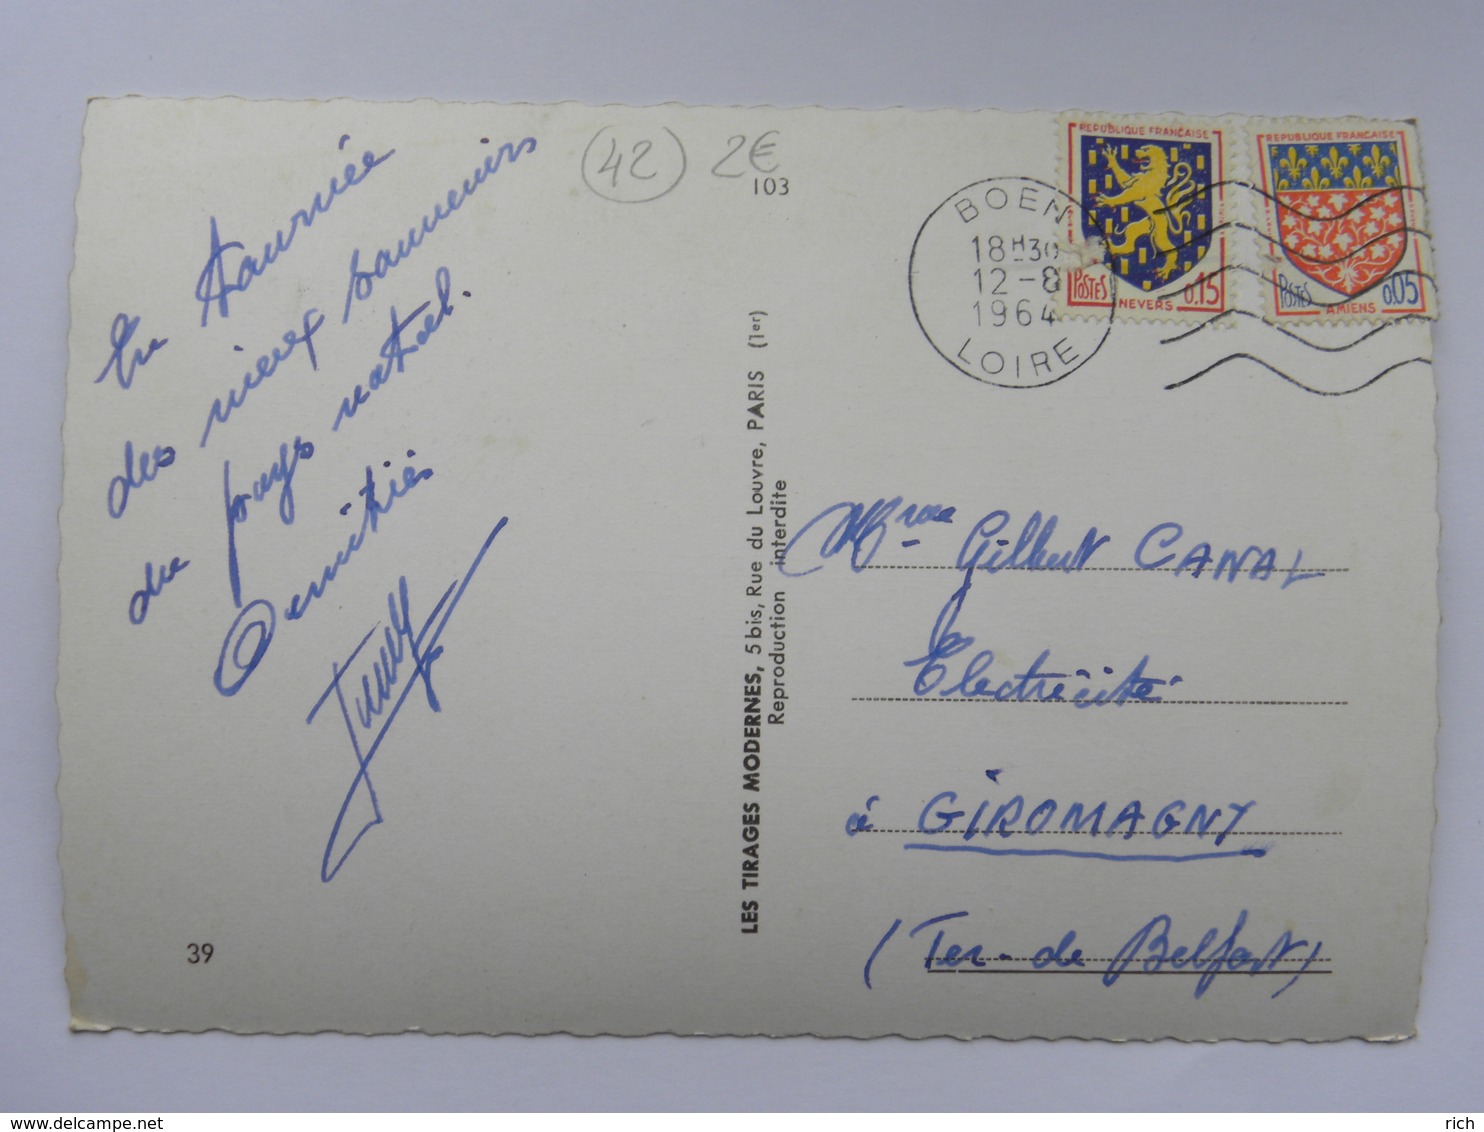 En tournée
des vieux souvenirs
du pays natal.
Amitiés
39
(42) 2€
103
LES TIRAGES MODERNES, 5 bis, Rue du Louvre, PARIS (1er)
Reproduction interdite
BOEN
18H30
12-8
1964
LOIRE
REPUBLIQUE FRANÇAISE
POSTES
NEVERS
0,15
REPUBLIQUE FRANÇAISE
POSTES
AMIENS
0,05
Mme Gilbert CANAL
Electricité
à GIROMAGNY
(Ter. de Belfort)
rich